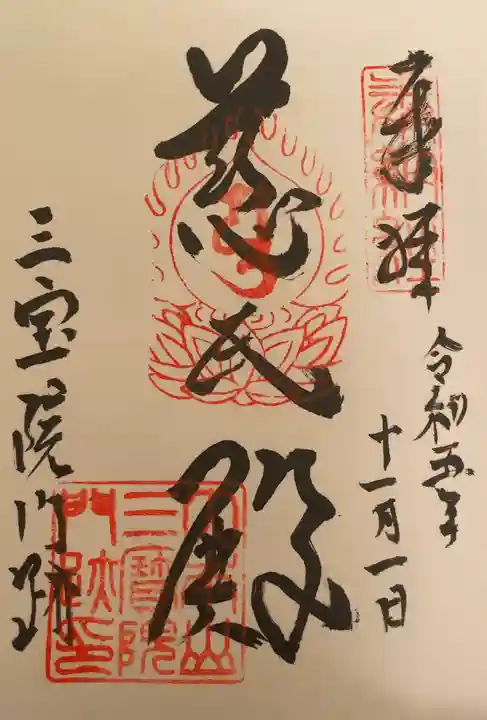 奉拝
令和五年
十一月一日
慈氏殿
三宝院門跡
三寶院
門跡印